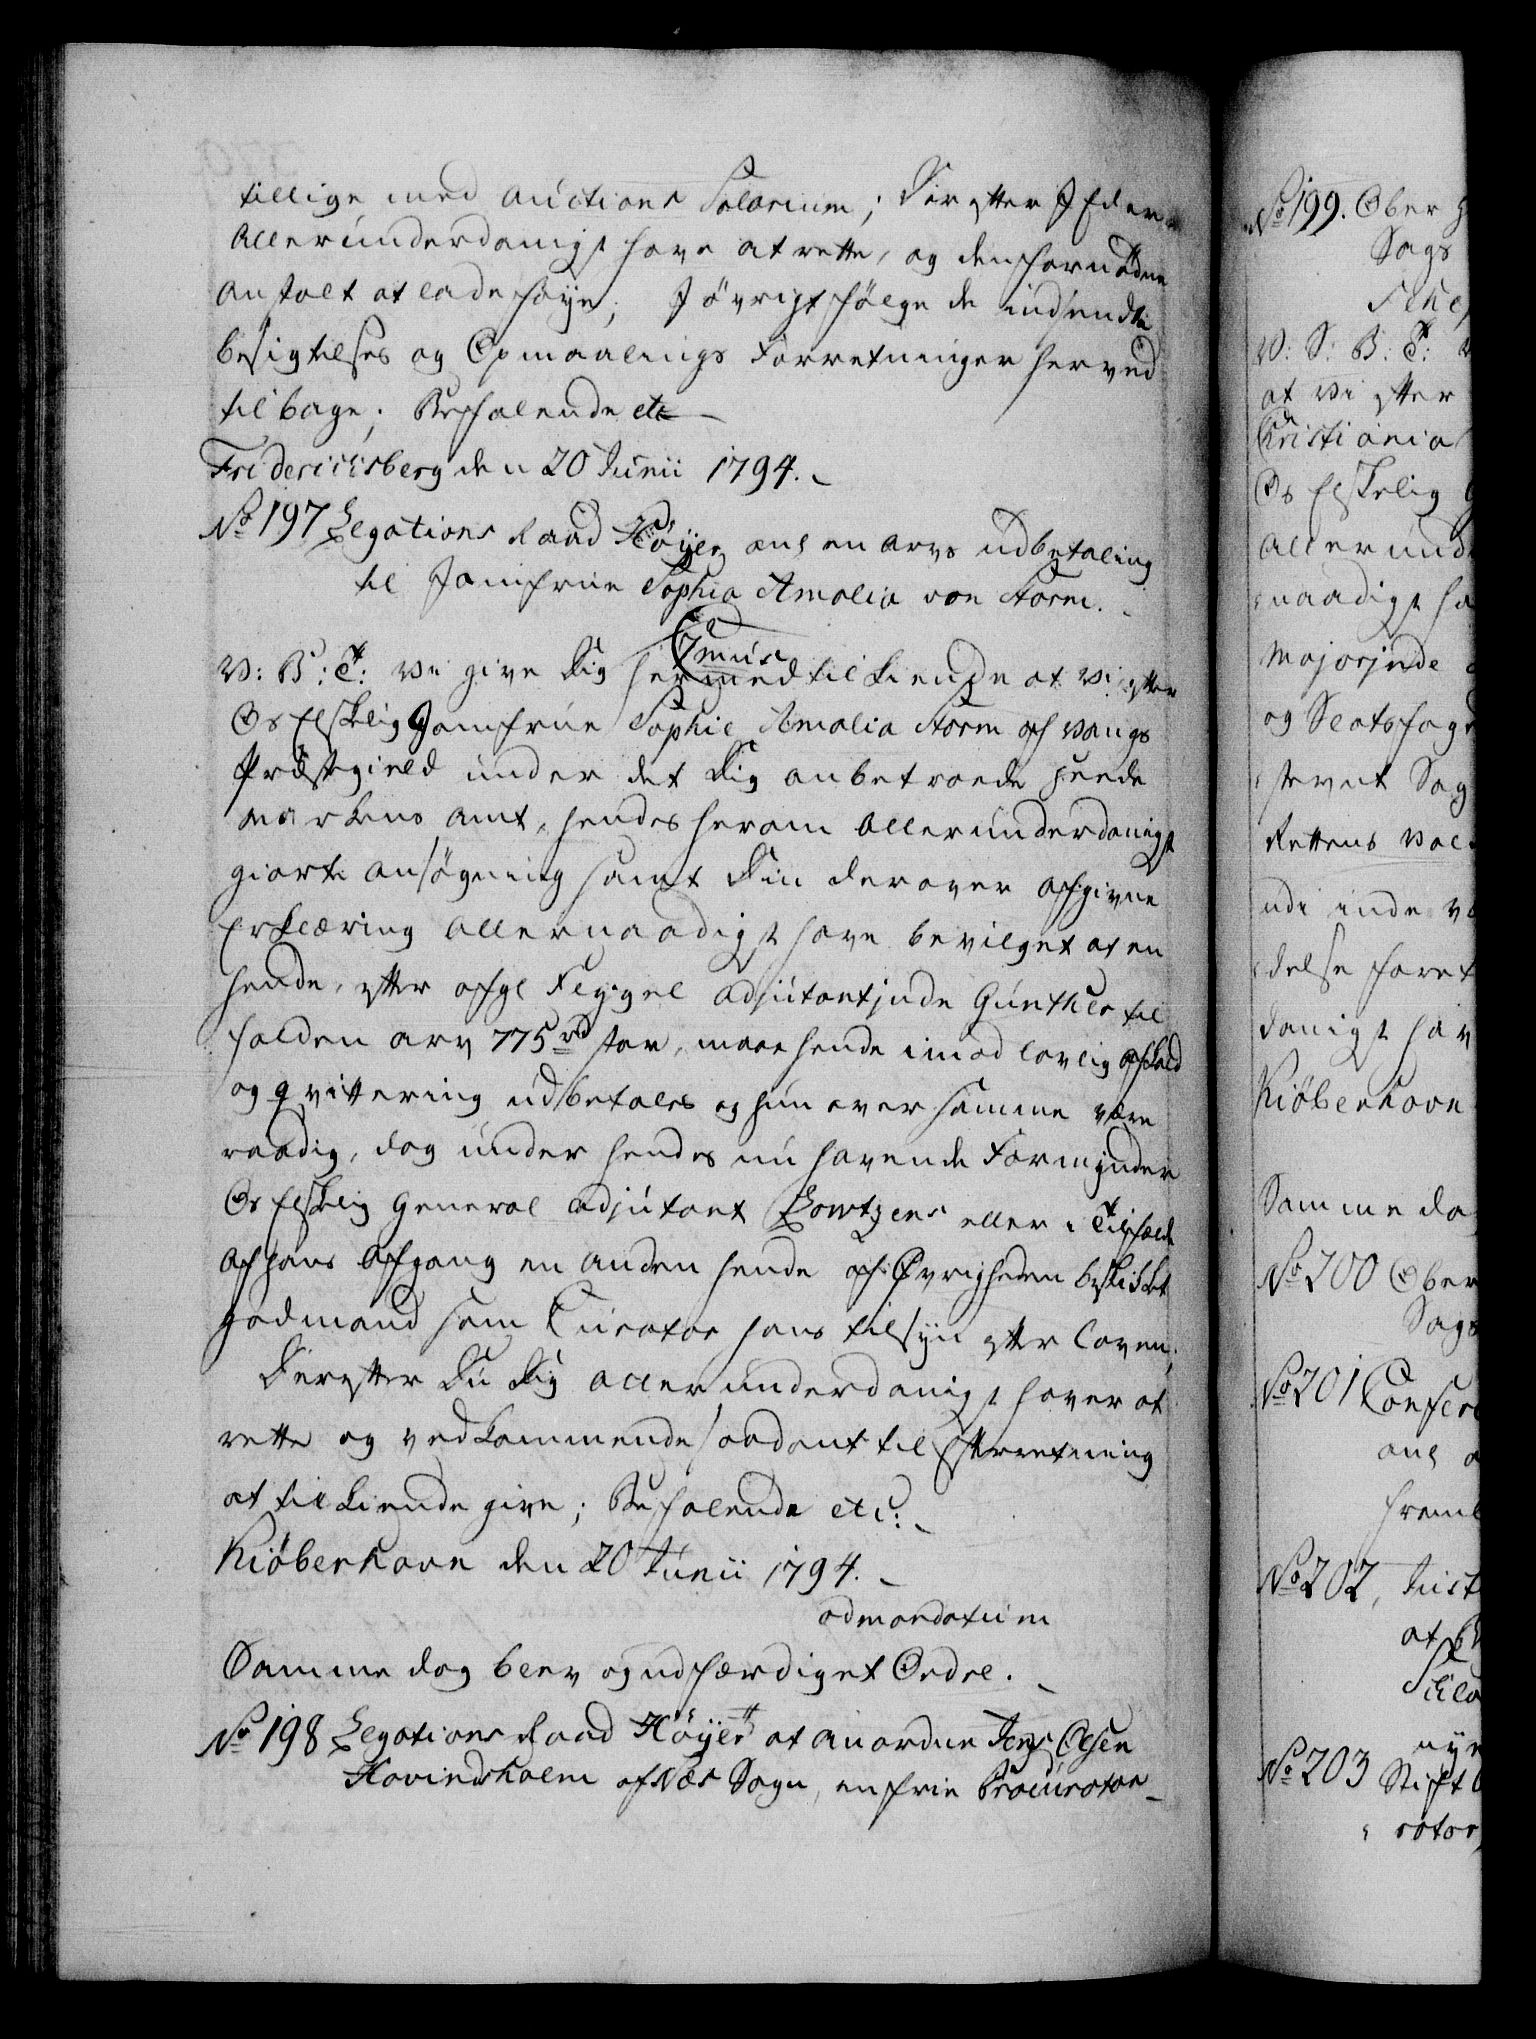 tillige med Auctions Salarium; Derefter I Eder
Allerunderdanigst have at rette, og den fornødne
Anstalt at lade føye; I øvrigt følge de indsendte
besigtelses og Opmaalings Forretninger herved
tilbage; Befalende etc
Friderichsberg den 20 Junii 1794.
No 197 Legations Raad Höyer anl en Arvs udbetaling
til Jomfrue Sophia Amalia von Storm.
C 7mus
V: B: T: Vi give Dig hermed tilkiende at Vi efter
Os Elskelig Jomfrue Sophie Amalia Storm af Vangs
Præstegield under det Dig anbetroede Hede
markens Amt, hendes herom Allerunderdanigst
giorte Ansøgning samt Din derover afgivne
Erklæring Allernaadigst have bevilget at en
hende, efter afgl Fløygel Adjutantjnde Günther til
falden Arv 775 rd stor, maae hende imod lovlig afkald
og qvittering udbetales og hun over samme være
raadig, dog under hendes nu havende Formynder
Os Elskelig General Adjutant Lowtzens eller i Tilfælde
af hans Afgang en anden hende af Øvrigheden beskikket
godmand som Curator hans tilsyn efter Loven;
Derefter Du Dig allerunderdanigst haver at
rette og vedkommende saadant til Efterretning
at tilkiende give; Befalende etc:
Kiøbenhavn den 20 Junii 1794.
ad mandatum
Samme dag blev og udfærdiget Ordre.
No 198 Legations Raad Höyer at anordne Jens Olsen
Hovindsholm af Næs Sogn, en frie Procurator
No 199. Ober
Sags
V: S: B: T:
at Vi efter
Christiania
Os Elskelig
Allerund
naadigst ha
Majorjnde
og Slotsfog
stevnt Sag
Rettens
udi inde
delse foret
danigst hav
Kiøbenhavn
Samme da
No 200 Ober
Sags
No 201 Confere
anl
freml
No 202, Just
at
nye
No 203 Stift
rator